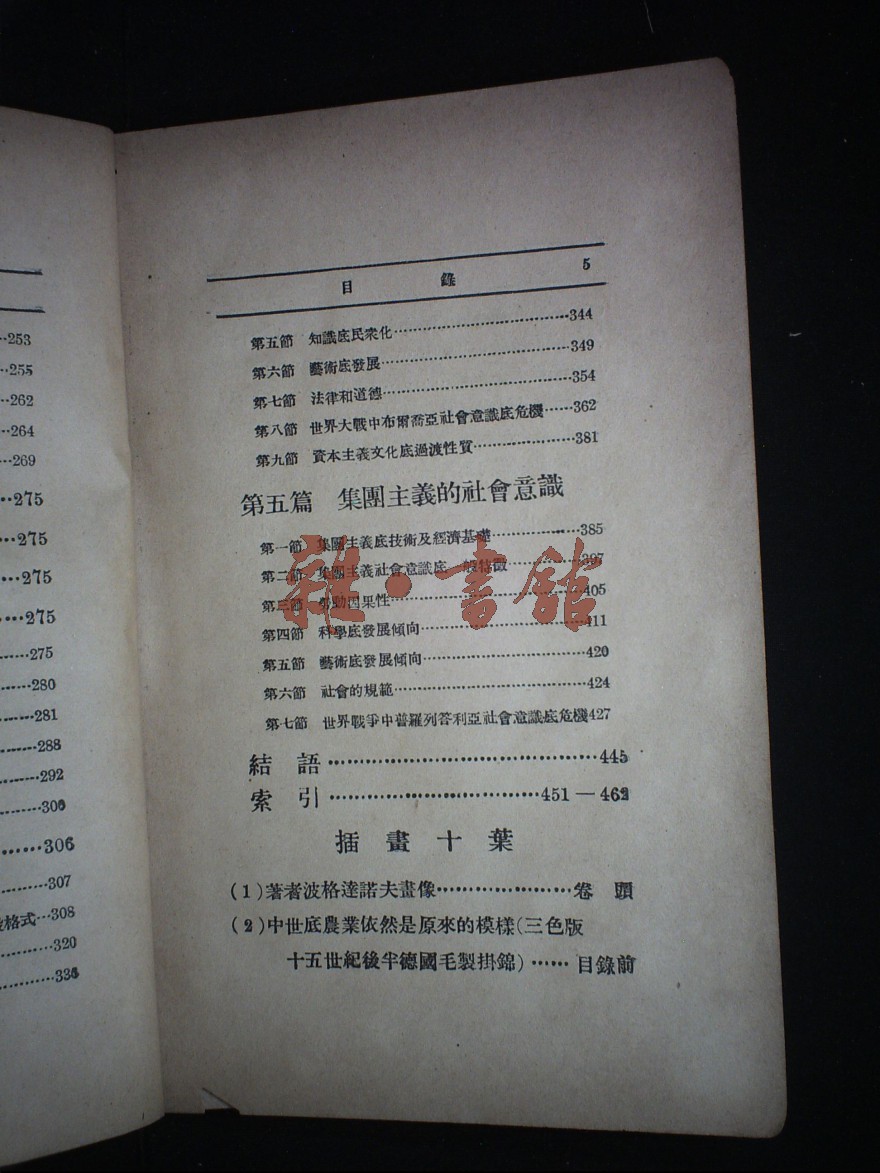 …253
…255
…262
…264
…269
…275
…275
…275
…275
…275
…280
…281
…288
…292
…300
…306
…307
格式…308
…320
…335
目 錄 5
第五節 知識底民衆化…344
第六節 藝術底發展…349
第七節 法律和道德…354
第八節 世界大戰中布爾喬亞社會意識底危機…362
第九節 資本主義文化底過渡性質…381
第五篇 集團主義的社會意識
第一節 集團主義底技術及經濟基礎…385
第二節 集團主義社會意識底一般特徵…397
第三節 勞動因果性…405
第四節 科學底發展傾向…411
第五節 藝術底發展傾向…420
第六節 社會的規範…424
第七節 世界戰爭中普羅列答利亞社會意識底危機427
結 語…445
索 引…451—462
插畫十葉
(1)著者波格達諾夫畫像…卷 頭
(2)中世底農業依然是原來的模樣(三色版
十五世紀後半德國毛製掛錦)…目錄前
雜·書館